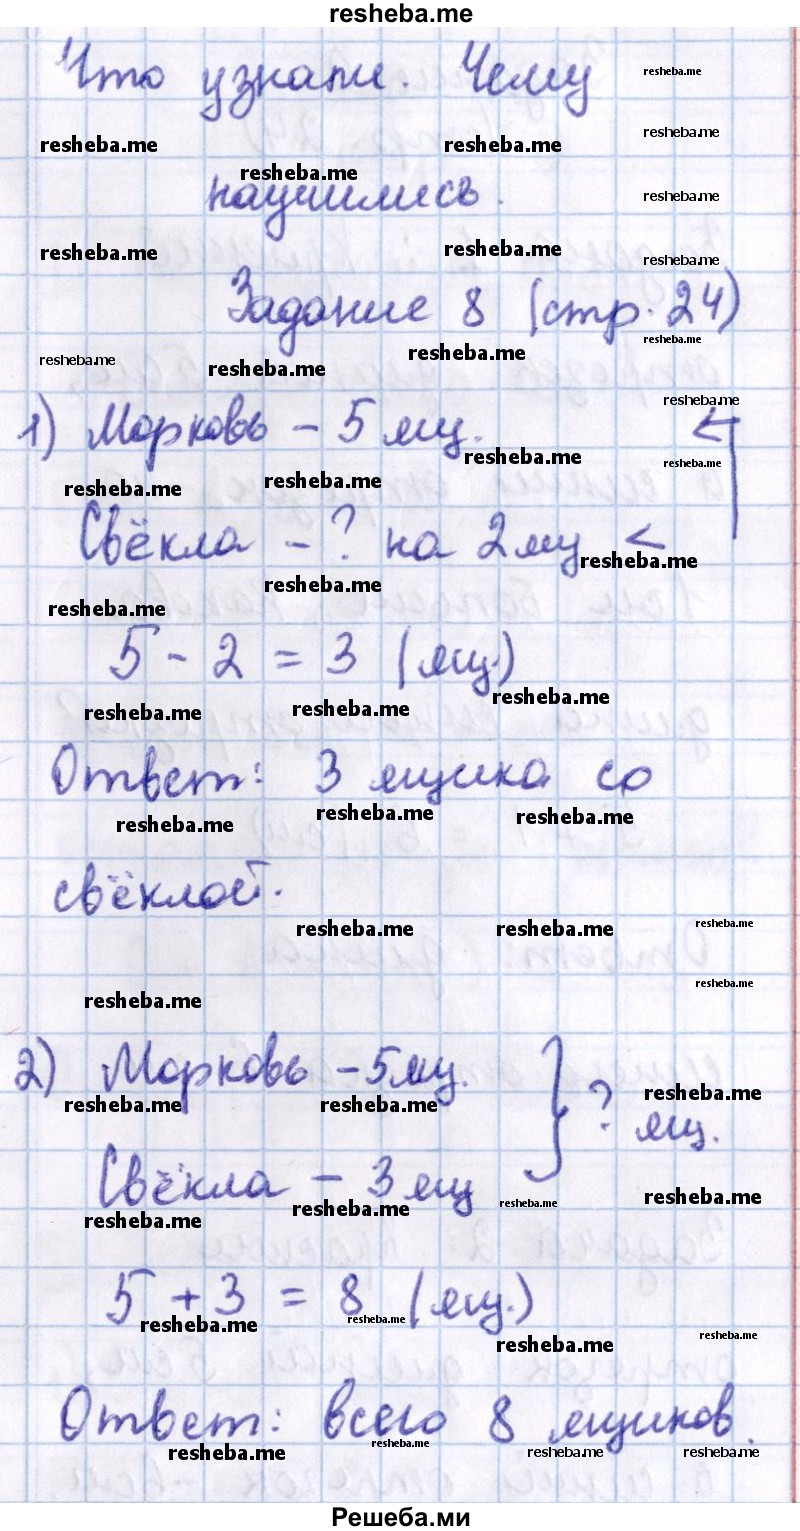 resheba.me
Что узнали. Чему
научились.
Задание 8 (стр. 24)
1) Морковь - 5 ящ.
Свёкла - ? на 2 ящ <
5 - 2 = 3 (ящ.)
Ответ: 3 ящика со
свёклой.
2) Морковь - 5 ящ.
? ящ.
Свёкла - 3 ящ
5 + 3 = 8 (ящ.)
Ответ: всего 8 ящиков.
Решеба.ми